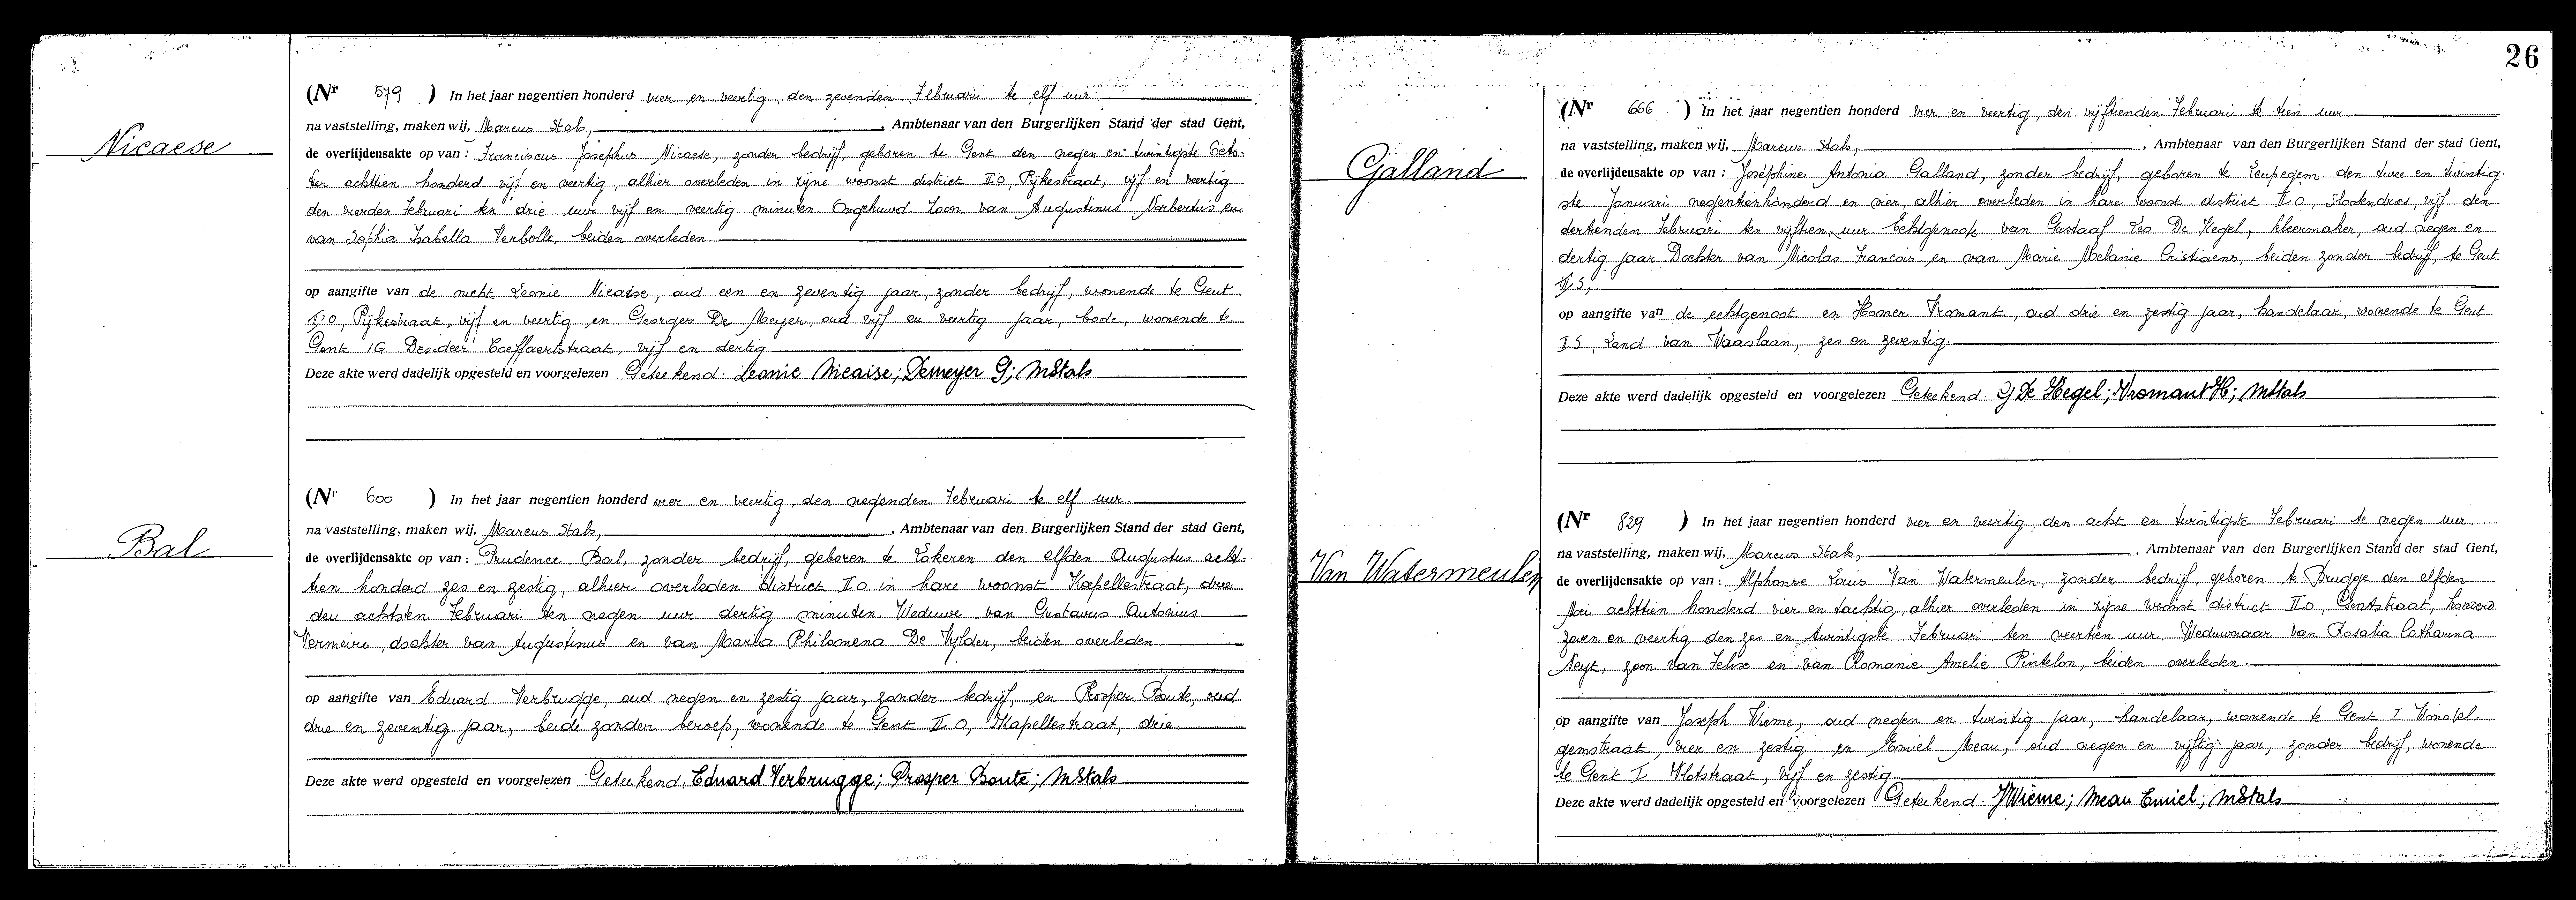 26
Nicaese
(Nr 579 ) In het jaar negentien honderd vier en veertig, den zevenden Februari te elf uur
na vaststelling, maken wij, Marcus Stals, , Ambtenaar van den Burgerlijken Stand der stad Gent,
de overlijdensakte op van : Franciscus Josephus Nicaese, zonder bedrijf, geboren te Gent den negen en twintigste Octo-
ber achttien honderd vijf en veertig, alhier overleden in zijne woonst district II O, Pijkestraat, vijf en veertig
den vierden Februari ten drie uur vijf en veertig minuten. Ongehuwd. Zoon van Augustinus Norbertus en
van Sophia Isabella Verbolle, beiden overleden.
op aangifte van de nicht Leonie Nicaise, oud een en zeventig jaar, zonder bedrijf, wonende te Gent
II O, Pijkestraat, vijf en veertig en Georges De Meyer, oud vijf en veertig jaar, bode, wonende te
Gent IG Desideer straat, vijf en dertig
Deze akte werd dadelijk opgesteld en voorgelezen Geteekend: Leonie Nicaise; Demeyer G; MStals
Bal
(Nr 600 ) In het jaar negentien honderd vier en veertig, den negenden Februari te elf uur.
na vaststelling, maken wij, Marcus Stals, , Ambtenaar van den Burgerlijken Stand der stad Gent,
de overlijdensakte op van : Prudence Bal, zonder bedrijf, geboren te Lokeren den elfden Augustus acht-
tien honderd zes en zestig, alhier overleden district II O in hare woonst Kapellestraat, drie
den achtsten Februari ten negen uur dertig minuten. Weduwe van Gustavus Antonius
Vermeire, dochter van Augustinus en van Maria Philomena De Vylder, beiden overleden.
op aangifte van Eduard Verbrugge, oud negen en zestig jaar, zonder bedrijf, en Prosper Boute, oud
drie en zeventig jaar, beide zonder beroep, wonende te Gent II O, Kapellestraat, drie
Deze akte werd opgesteld en voorgelezen Geteekend: Eduard Verbrugge; Prosper Boute; MStals
Galland
(Nr 666 ) In het jaar negentien honderd vier en veertig, den vijftienden Februari te tien uur
na vaststelling, maken wij, Marcus Stals, , Ambtenaar van den Burgerlijken Stand der stad Gent,
de overlijdensakte op van : Joséphine Antonia Galland, zonder bedrijf, geboren te Leupegem den twee en twintig-
ste Januari negentienhonderd en vier, alhier overleden in hare woonst district II O, Slookendries, vijf den
dertienden Februari ten vijftien uur. Echtgenoote van Gustaaf Leo De Hegel, kleermaker, oud negen en
dertig jaar Dochter van Nicolas Francois en van Marie Melanie Cristiaens, beiden zonder bedrijf, te Gent
op aangifte van de echtgenoot en Homer Vromant, oud drie en zestig jaar, handelaar, wonende te Gent
I S, Land van Waaslaan, zes en zeventig.
Deze akte werd dadelijk opgesteld en voorgelezen Geteekend: G De Hegel; Vromant H; MStals
Van Watermeulen
(Nr 829 ) In het jaar negentien honderd vier en veertig, den acht en twintigste Februari te negen uur
na vaststelling, maken wij, Marcus Stals, , Ambtenaar van den Burgerlijken Stand der stad Gent,
de overlijdensakte op van : Alphonse Louis Van Watermeulen, zonder bedrijf, geboren te Brugge den elfden
Mei achttien honderd vier en tachtig, alhier overleden in zijne woonst district II O, Gentstraat, honderd
zeven en veertig den zes en twintigste Februari ten veertien uur. Weduwnaar van Rosalia Catharina
Neyt, zoon van Felix en van Romanie Amelie Pintelon, beiden overleden.
op aangifte van Joseph Wieme, oud negen en twintig jaar, handelaar, wonende te Gent I Wondel-
gemstraat, vier en zestig en Emiel Meau, oud negen en vijftig jaar, zonder bedrijf, wonende
te Gent I Vlotstraat, vijf en zestig
Deze akte werd dadelijk opgesteld en voorgelezen Geteekend: J Wieme; Meau Emiel; MStals